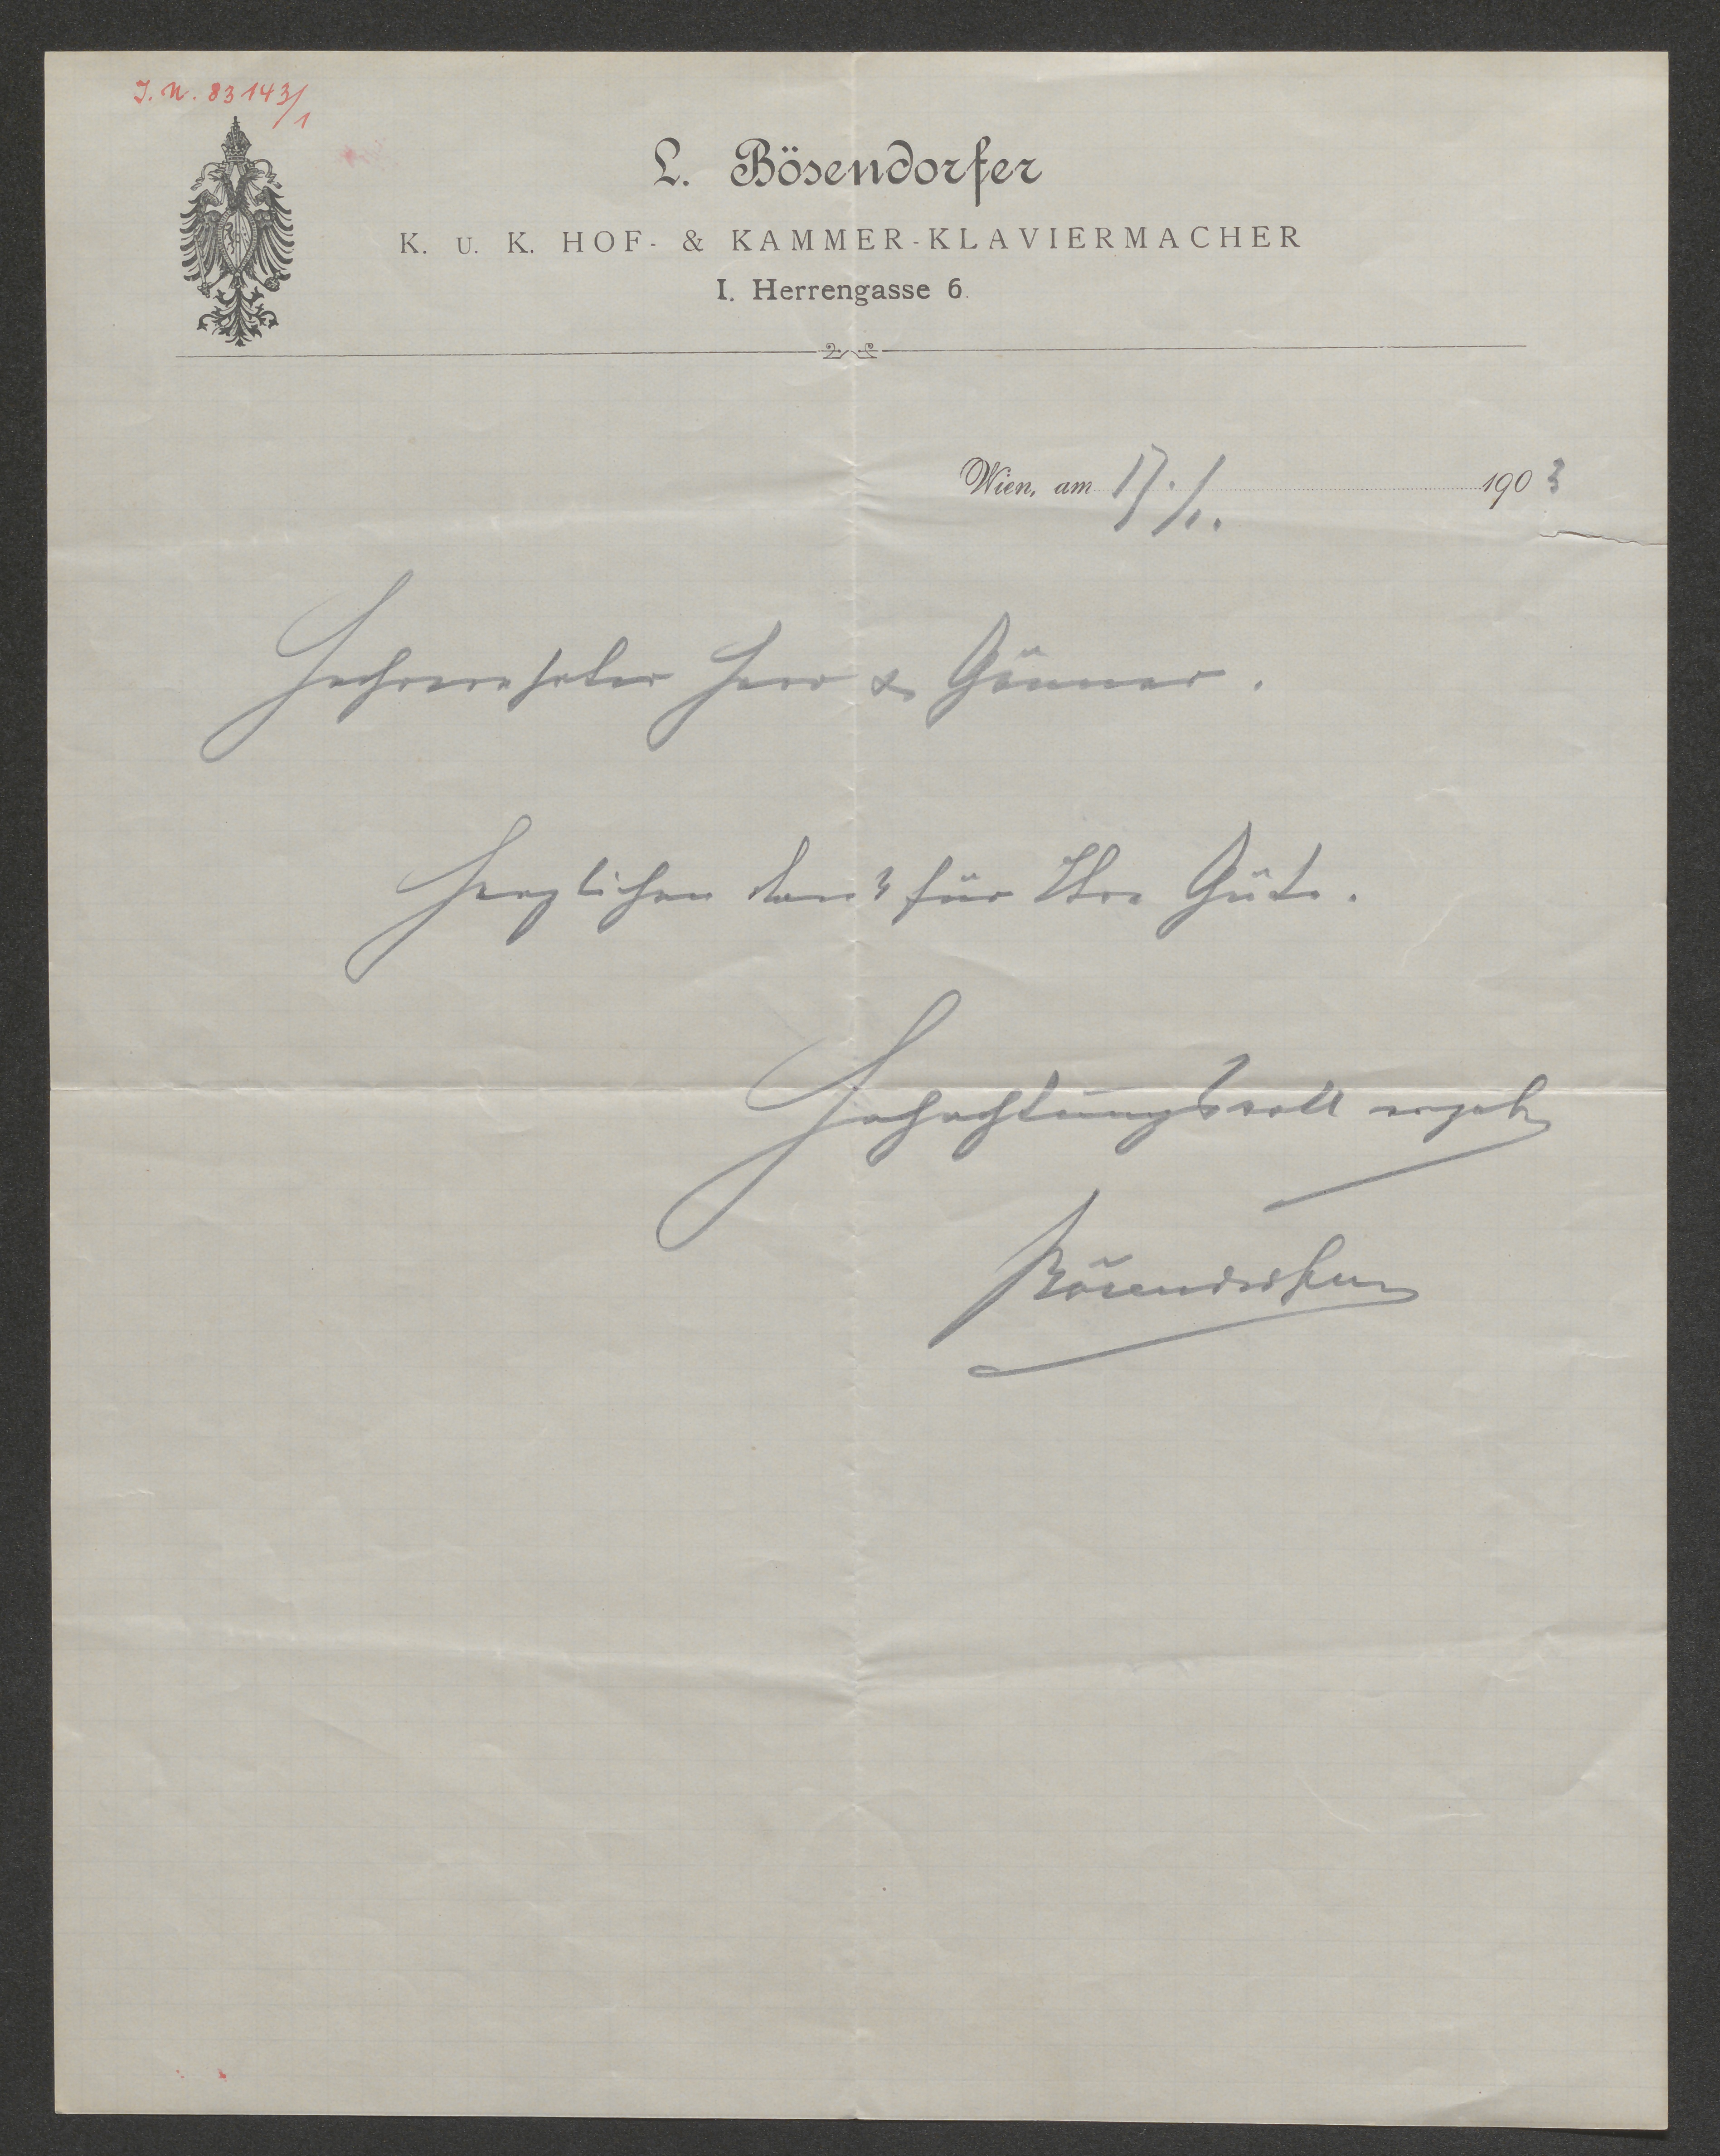 J. N. 83143/1
L. Bösendorfer
K. U. K. HOF- & KAMMER-KLAVIERMACHER
I. Herrengasse 6.
Wien, am 17./1. 1903
Hochverehrter Herr & Gönner.
Herzlichen Dank für Ihre Güte.
Hochachtungsvoll ergeb
Bösendorfer